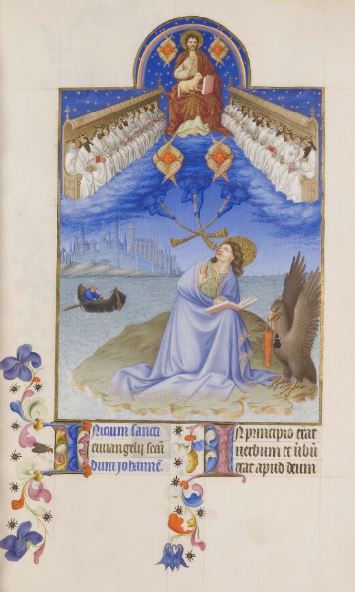 Inicium sancti
euuangelij secũ
dum Johannē.
In principio erat
uerbum et ũbũ
erat apud deum